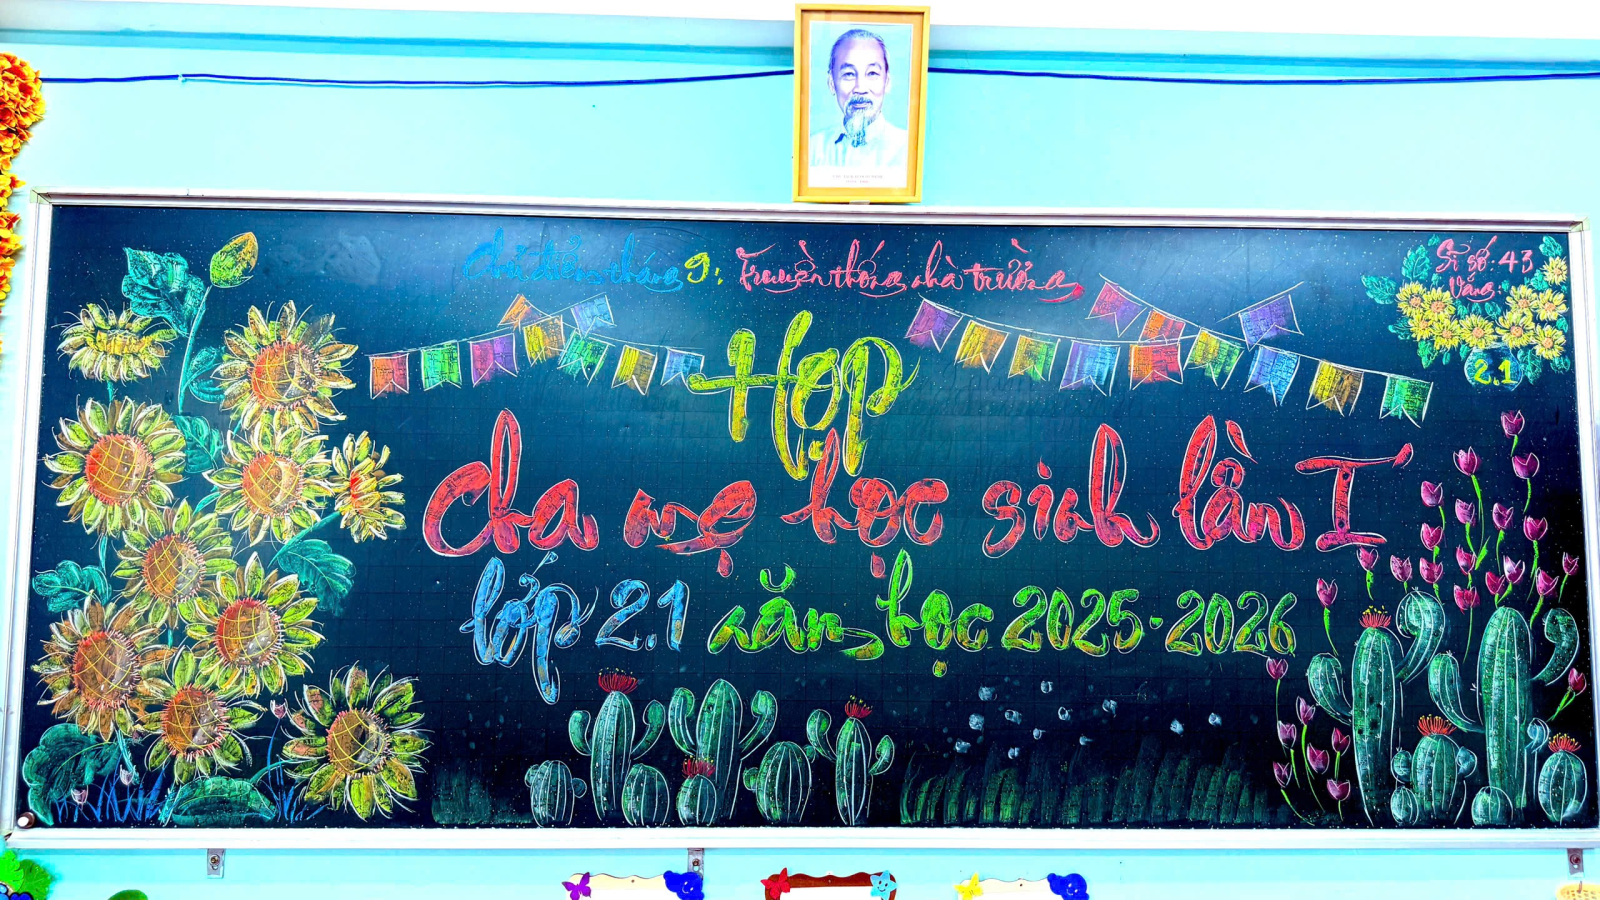 Chủ điểm tháng 9: Truyền thống nhà trường.
Sĩ số: 43
Vắng:
2.1
Họp
cha mẹ học sinh lần I
lớp 2.1 năm học 2025-2026